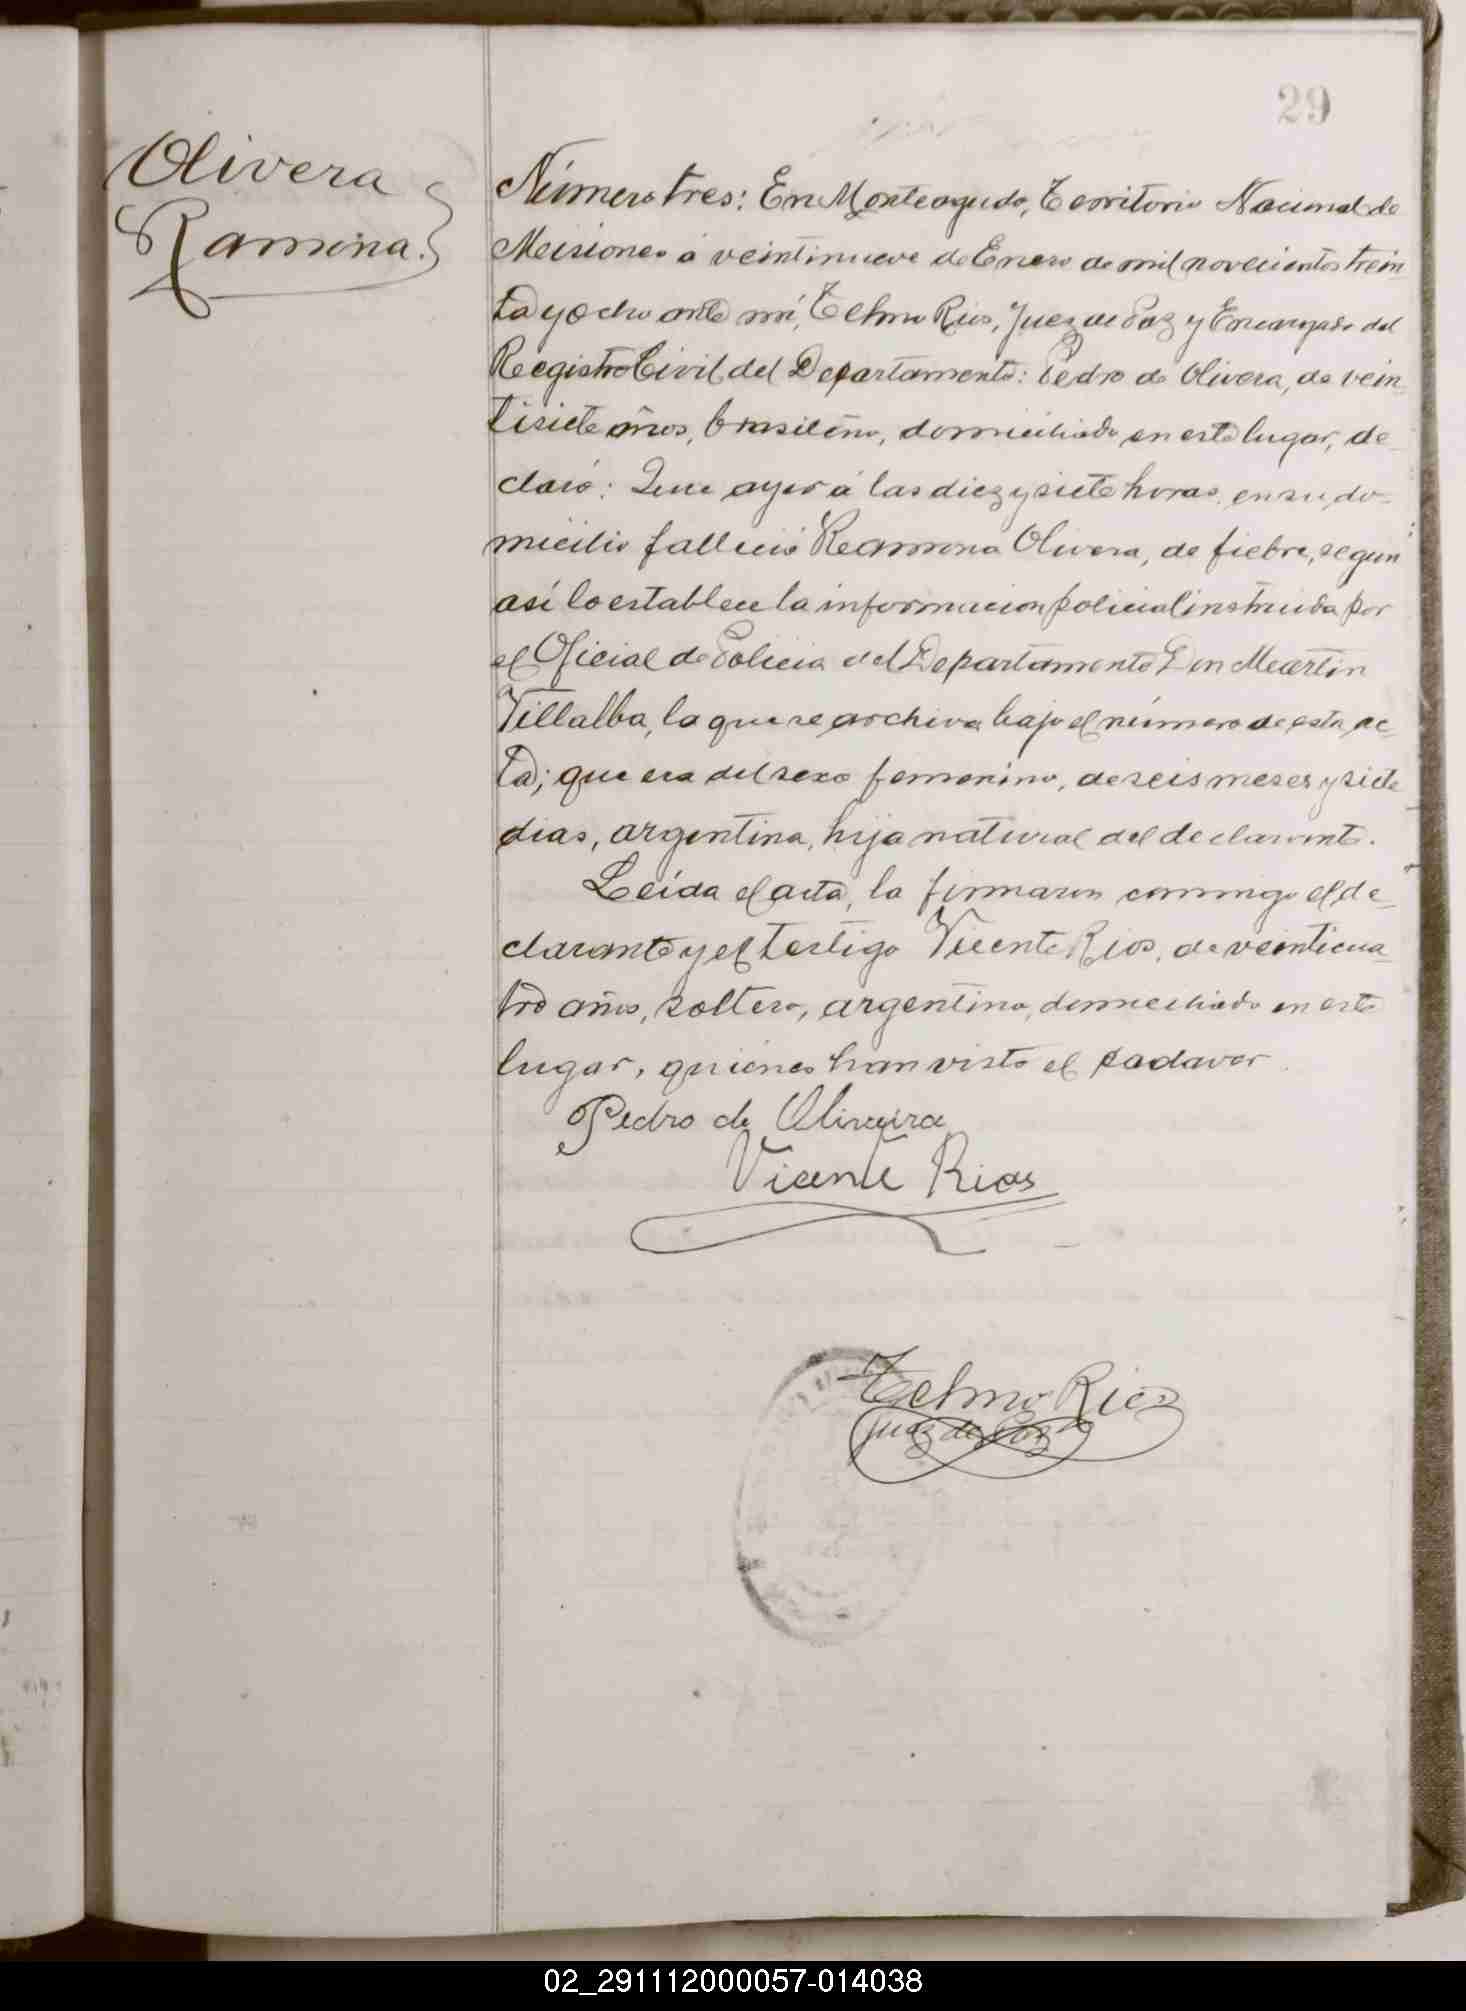 29
Olivera
Ramona.
Número tres: En Monteagudo, Territorio Nacional de
Misiones á veintinueve de Enero de mil novecientos trein
ta y ocho ante mí, Telmo Rios, Juez de Paz y Encargado del
Registro Civil del Departamento: Pedro de Olivera, de vein-
tisiete años, brasileño, domiciliado en este lugar, de-
claró: Que ayer á las diez y siete horas, en su do-
micilio falleció Ramona Olivera, de fiebre, segun
así lo establece la informacion policial instruida por
el Oficial de Policia del Departamento Don Martin
Villalba, la que se archiva bajo el número de esta ac-
ta; que era del sexo femenino, de seis meses y siete
dias, argentina, hija natural del declarante.
Leída el acta, la firmaron conmigo el de-
clarante y el testigo Vicente Rios, de veinticua-
tro años, soltero, argentino, domiciliado en este
lugar, quiénes han visto el cadaver.
Pedro de Oliveira
Vicente Rios
Telmo Rios
Juez de Paz
02_291112000057-014038